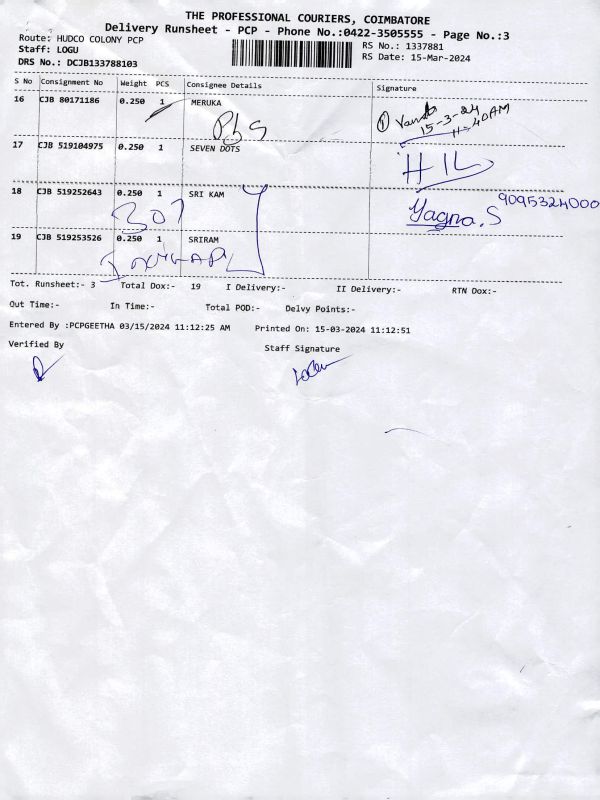 THE PROFESSIONAL COURIERS, COIMBATORE
Delivery Runsheet - PCP - Phone No.:0422-3505555 - Page No.:3
Route: HUDCO COLONY PCP
RS No.: 1337881
Staff: LOGU
RS Date: 15-Mar-2024
DRS No.: DCJB133788103
S No Consignment No Weight PCS Consignee Details Signature
16 CJB 80171186 0.250 1 MERUKA
15-3-24
11-40AM
17 CJB 519104975 0.250 1 SEVEN DOTS
HIL
18 CJB 519252643 0.250 1 SRI KAM
307
Yagna.S 9095324000
19 CJB 519253526 0.250 1 SRIRAM
Tot. Runsheet:- 3 Total Dox:- 19 I Delivery:- II Delivery:- RTN Dox:-
Out Time:- In Time:- Total POD:- Delvy Points:-
Entered By :PCPGEETHA 03/15/2024 11:12:25 AM Printed On: 15-03-2024 11:12:51
Verified By Staff Signature